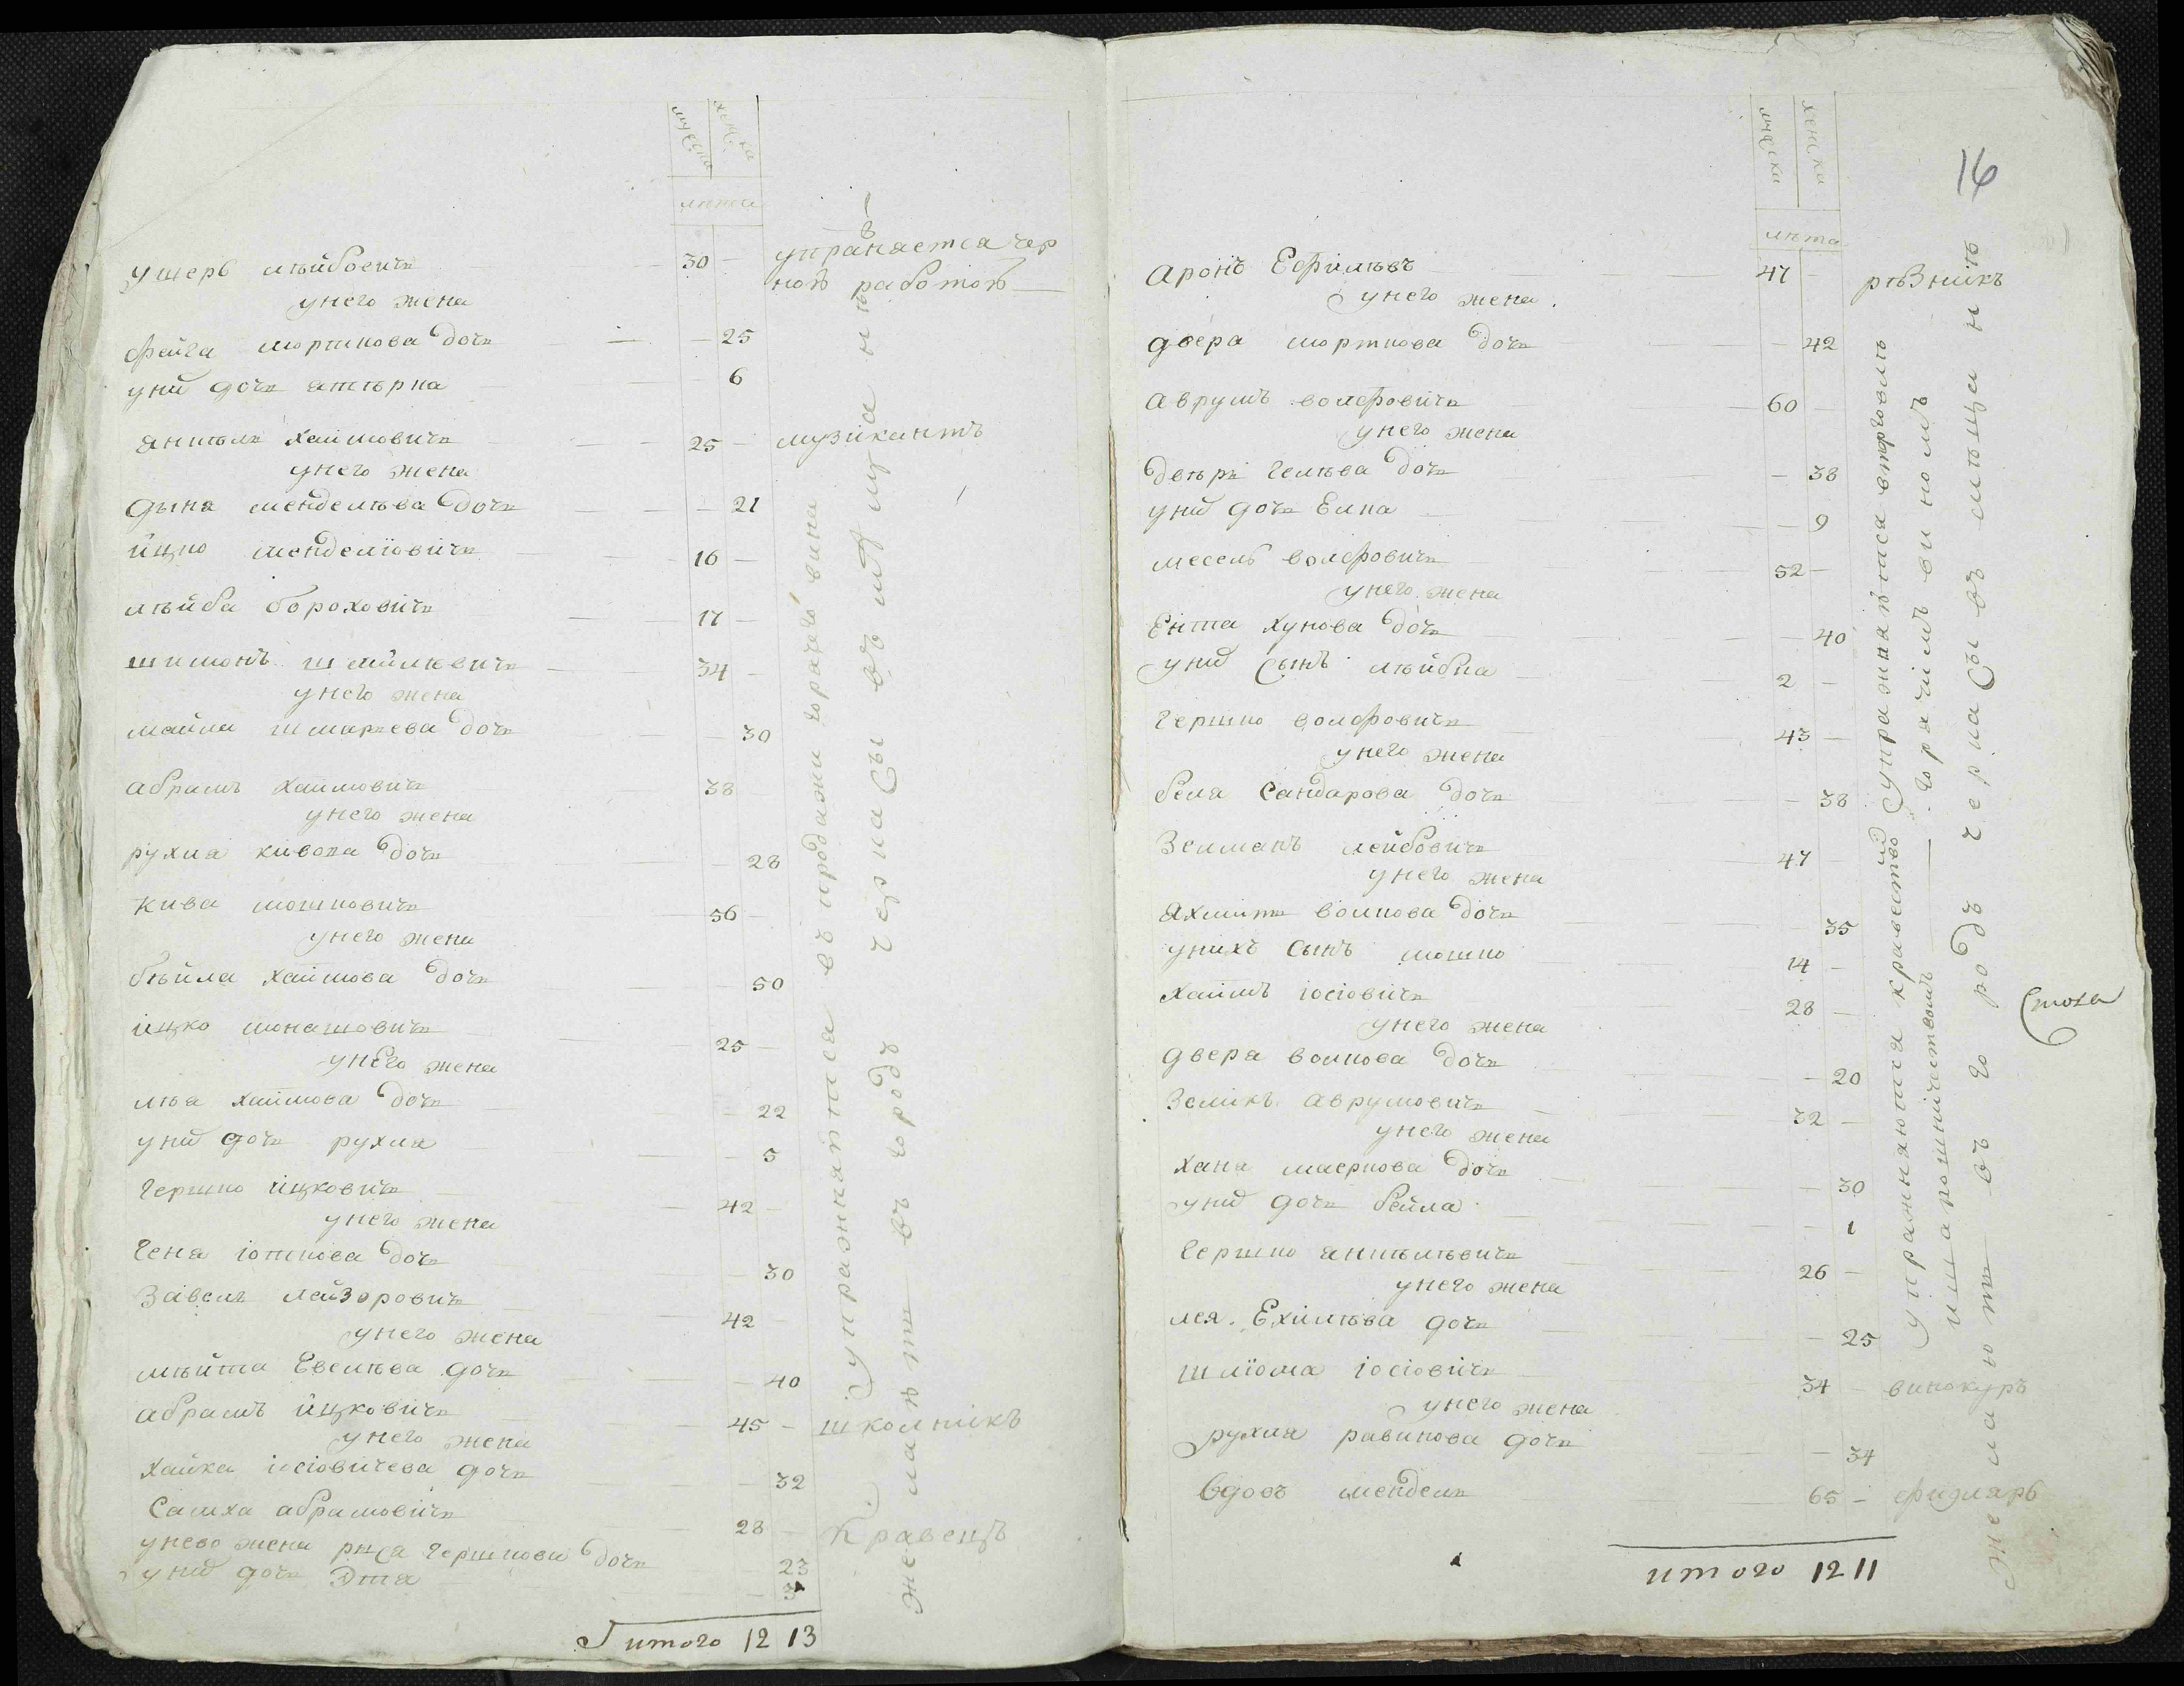 мужеска
женска
лѣта
ушерь лѣйбовичь 30 — упражняется чер
ноѣ работоѣ
унего жена
фейга морткова дочь — 25
уних дочь етьтѣрка 6
янкель хаимовичь 25 — музикантъ
унего жена
дына менделѣва дочь — 21
ицко менделіовичь 16 —
лѣйба бороховичь 17 —
шимонъ шмійлювичь 34 —
унего жена
майла шмарьева дочь — 30
абрамъ хаимовичь 38
унего жена
рухля кивова дочь — 28
кива мошковичь 56 —
унего жена
бѣйла хаимова дочь — 50
ицко монашовичь 25 —
унего жена
лѣа хаимова дочь — 22
уних дочь рухля — 5
гершко ицковичь 42 —
унего жена
геня іоткова дочь — 30
Завель лейзоровичь 42 —
унего жена
мѣйта Евелѣва дочь — 40
абрамъ ицковичь 45 — школнікъ
унего жена
хайка іосіовичева дочь — 32
Самха абрамовичь 28 — кравецъ
унево жена рыся гершкова дочь — 23
уних дочь Эта — 3
итого 12 13
упражнятся въ продажи горачего вина
желаютъ въ городъ черкасы въ мѣщане
16
мужеска
женска
лѣта
аронъ Ефимѣвъ 47 — рѣзникъ
унего жена
двера морткова дочь — 42
аврумъ волфовичь 60 —
унего жена
двѣрь гелѣва дочь — 38
уних дочь Елка — 9
месель волфовичь 52 —
унего жена
Ента хунова дочь — 40
уних сынъ лѣйбка 2 —
гершко волфовичь 43 —
унего жена
беля сандарова дочь — 38
Зелманъ лейбовичь 47
унего жена
яхмитъ волкова дочь — 35
унихъ сынъ мошко 14 —
хаимъ іосіовичь 28 —
унего жена
двера волкова дочь — 20
Зеликъ аврумовичь 32 —
унего жена
хана маеркова дочь — 30
уних дочь бейла — 1
гершко аншелѣвичь 26 —
унего жена
лея Ехилѣва дочь — 25
шліома іосіовичь 34 — винокуръ
унего жена
рухля равинова дочь — 34
вдовъ мендель 65 — фидляръ
итого 12 11
упражняются кравество
упражняются вторговлѣ
и шарошничествомъ — горячимъ виномъ
желаютъ въ городъ черкасы въ мѣщане